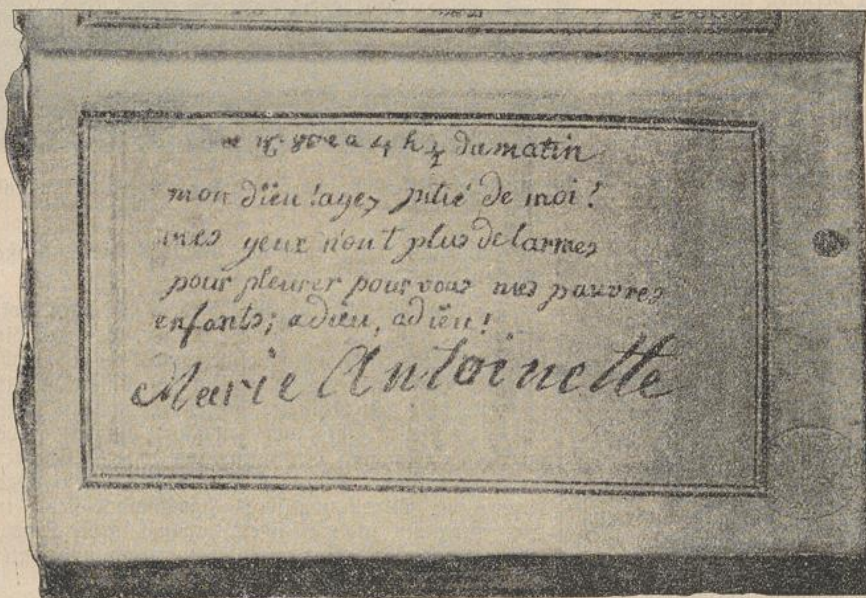 ce 16. 8bre a 4 h ½ du matin
mon dieu! ayez pitié de moi!
mes yeux n'ont plus de larmes
pour pleurer pour vous mes pauvres
enfants; adieu, adieu!
Marie Antoinette